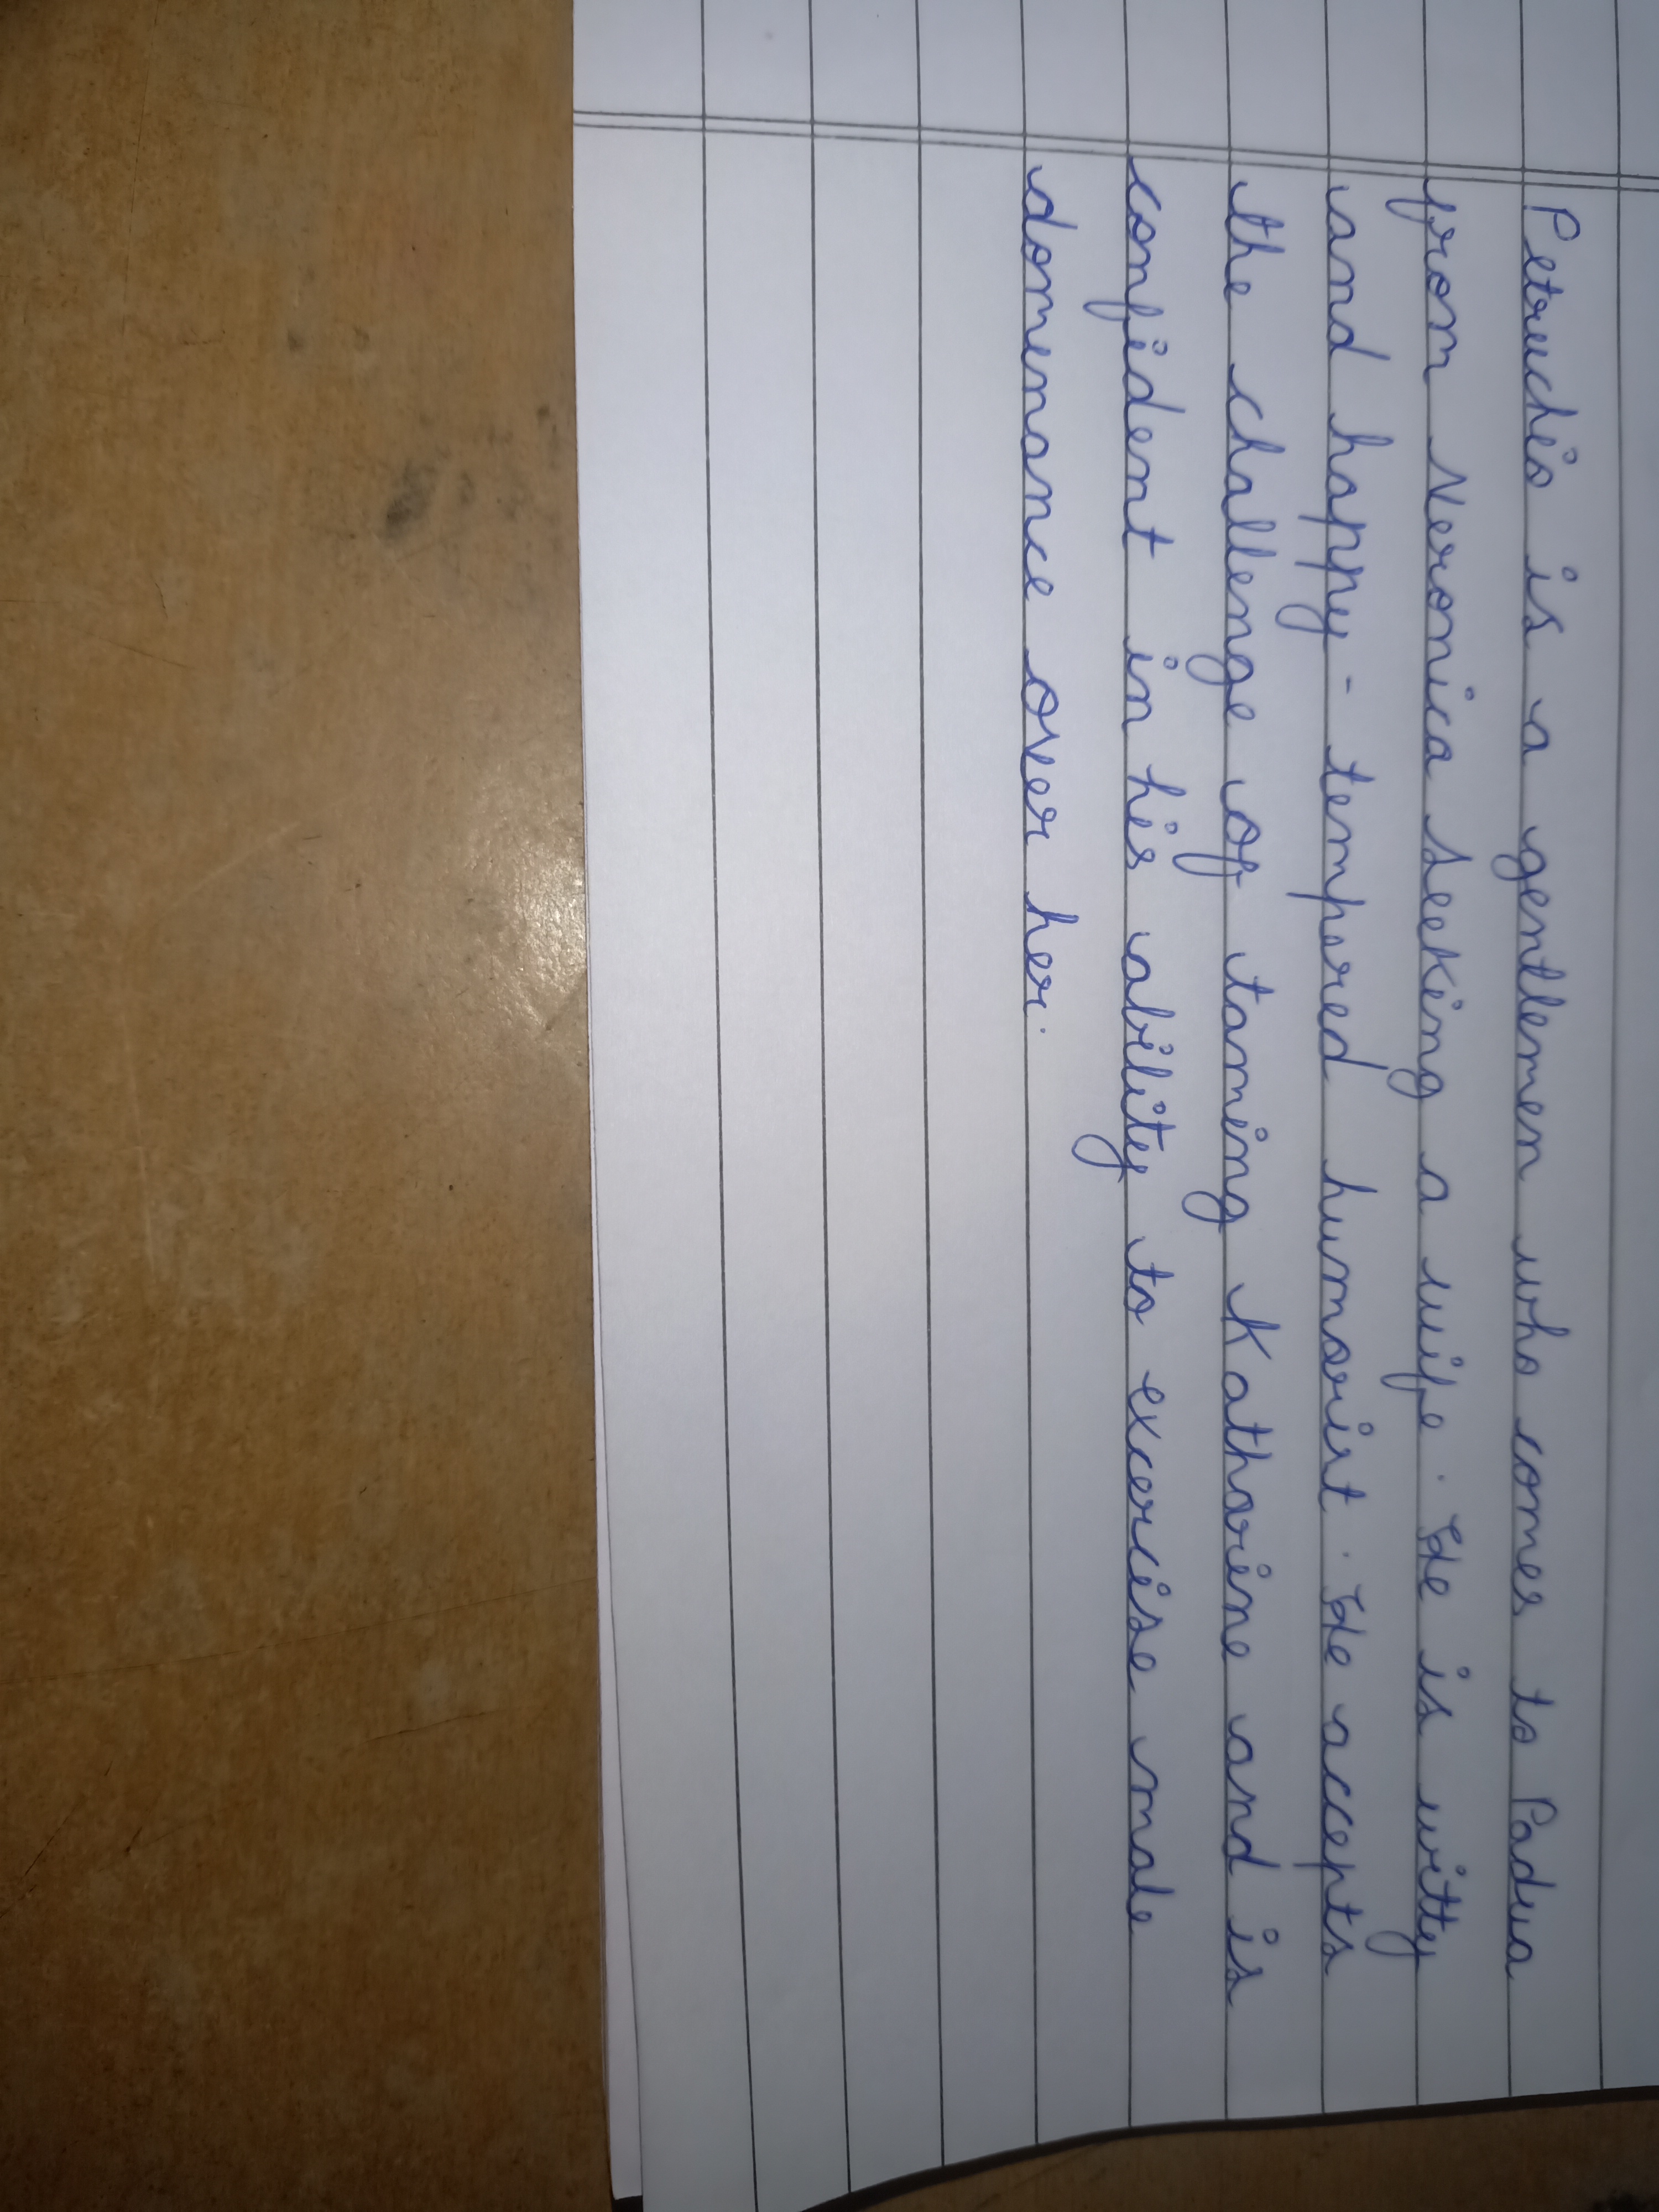 Petruchio is a gentlemen who comes to Padua
from Veronica seeking a wife. He is witty
and happy-tempered humorist. He accepts
the challenge of taming Katharine and is
confident in his ability to exercise male
domenance over her.